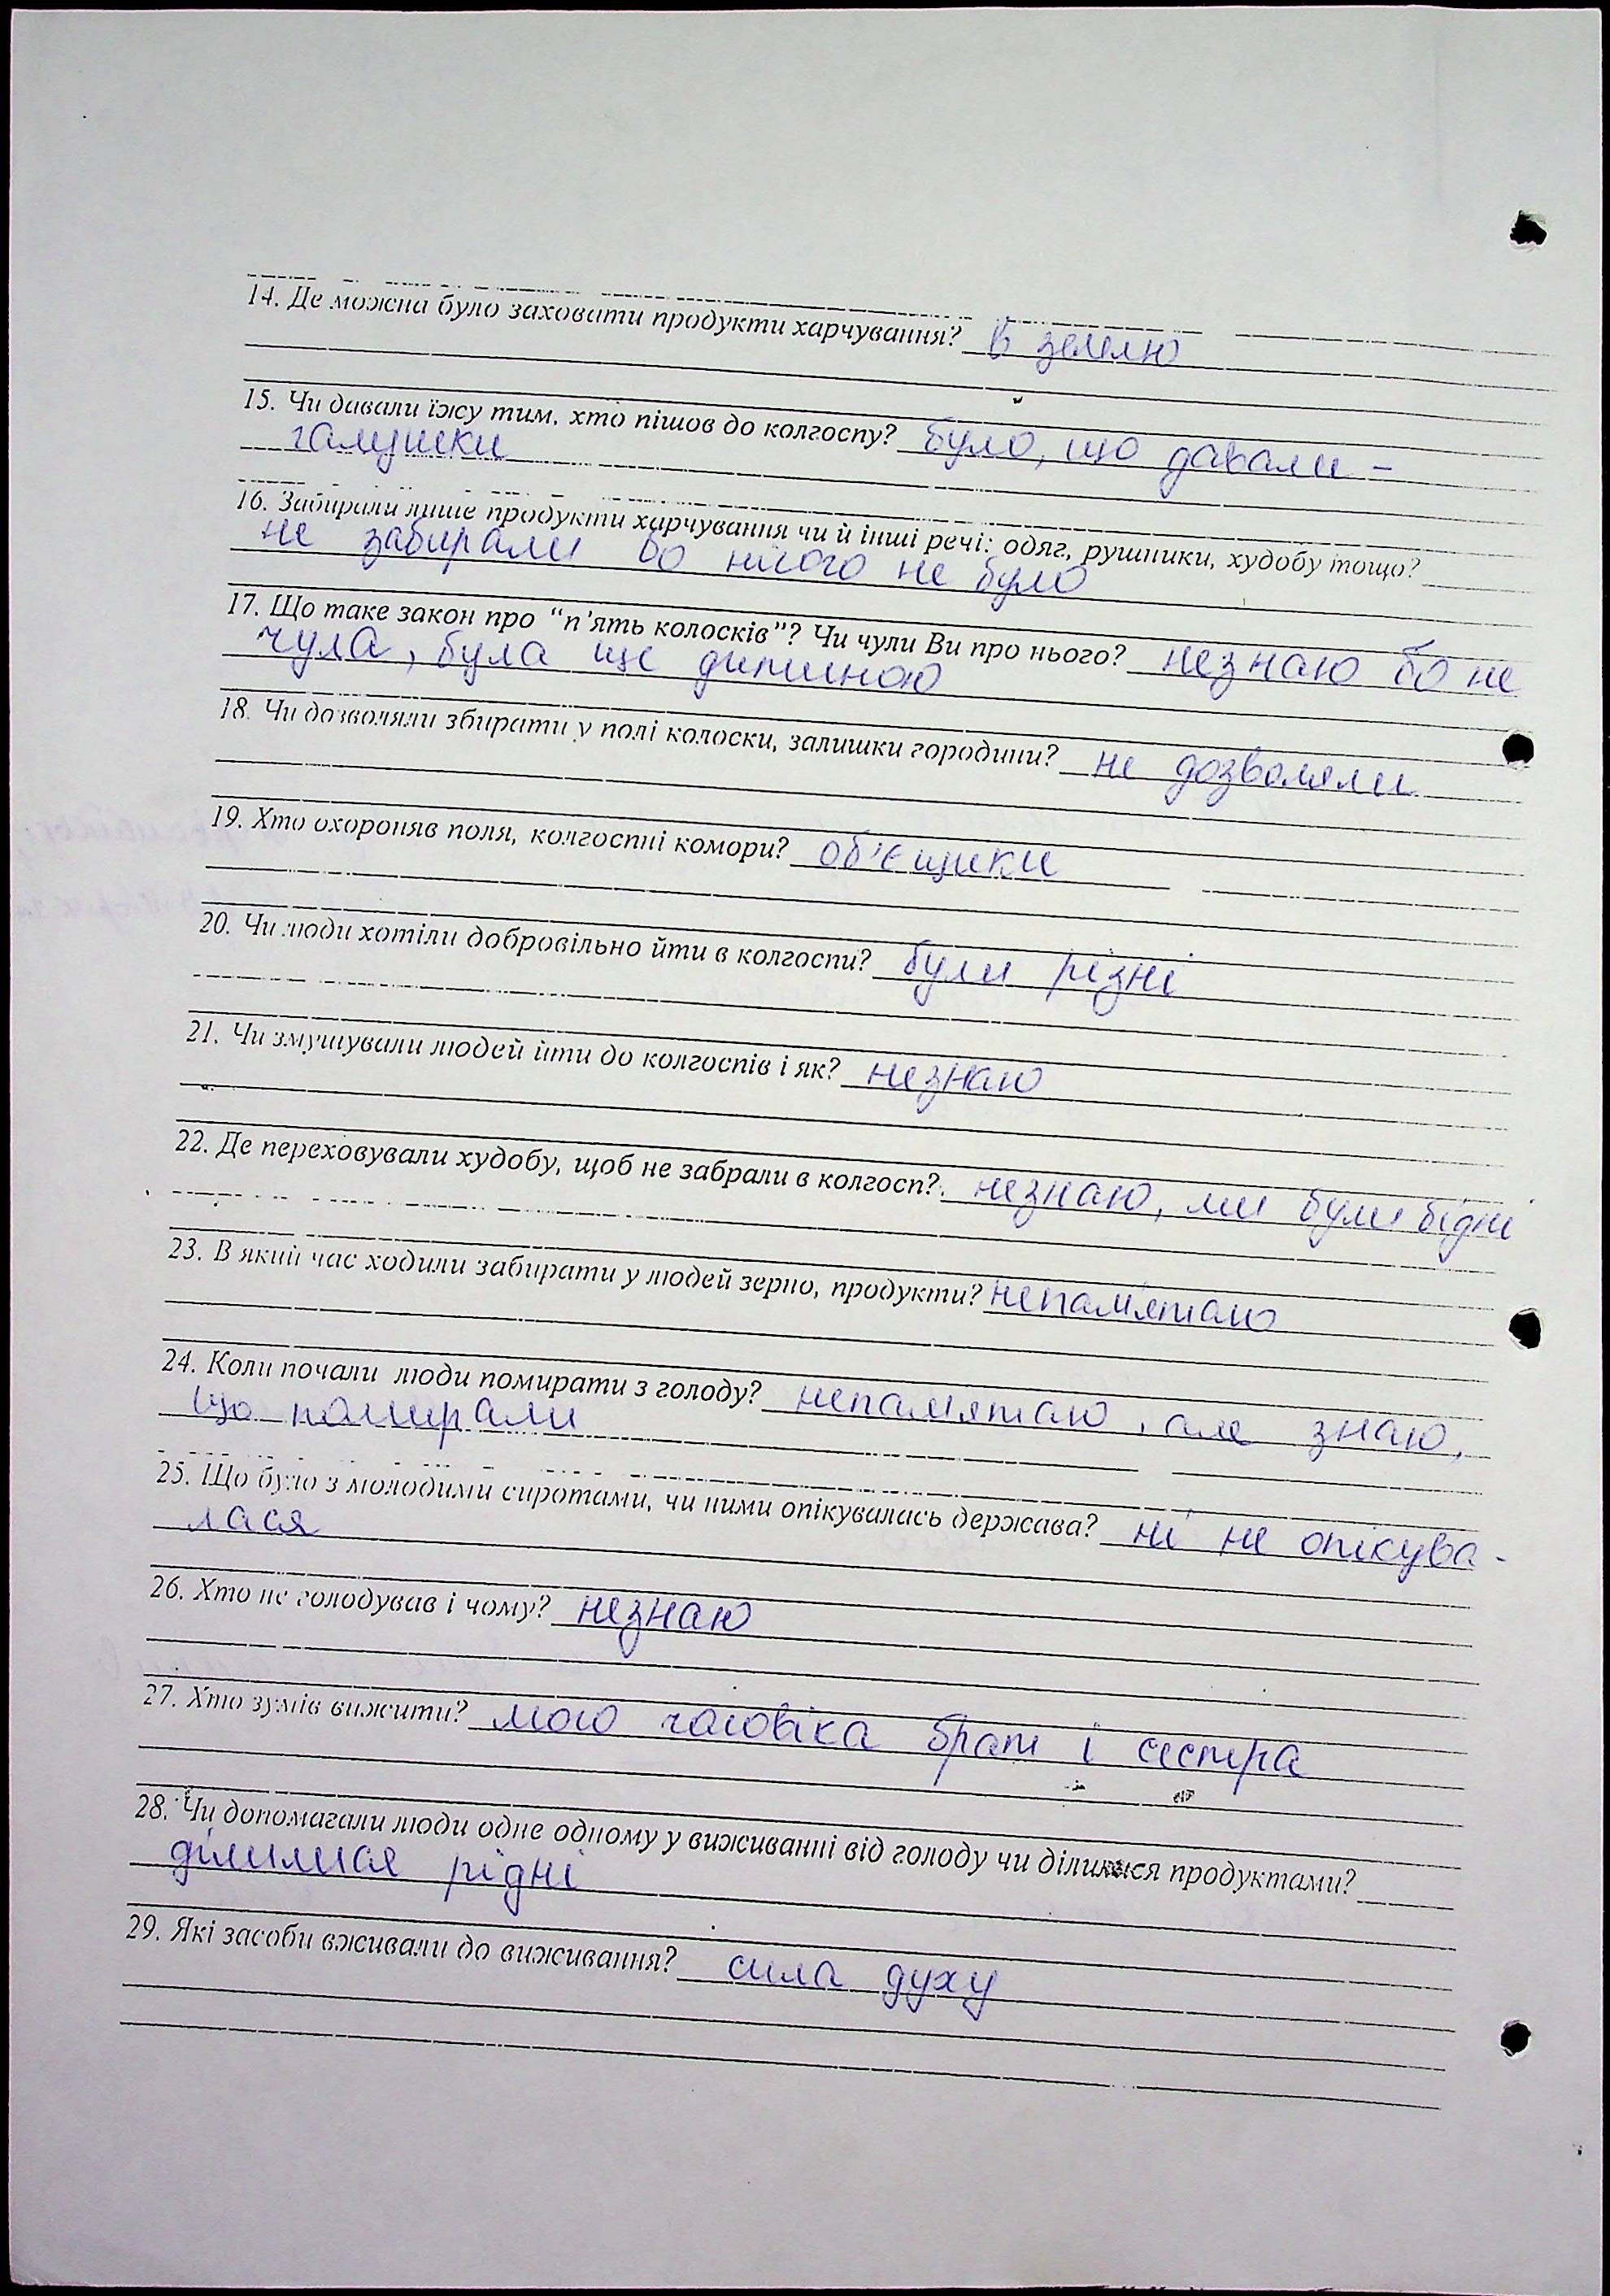 14. Де можна було заховати продукти харчування? в землю
15. Чи давали їжу тим, хто пішов до колгоспу? було, що давали -
галушки
16. Забирали лише продукти харчування чи й інші речі: одяг, рушники, худобу тощо?
не забирали бо нічого не було
17. Що таке закон про "п'ять колосків"? Чи чули Ви про нього? незнаю бо не
чула, була ще дитиною
18. Чи дозволяли збирати у полі колоски, залишки городини? не дозволяли
19. Хто охороняв поля, колгоспні комори? об'єщики
20. Чи люди хотіли добровільно йти в колгоспи? були різні
21. Чи змушували людей йти до колгоспів і як? незнаю
22. Де переховували худобу, щоб не забрали в колгосп? незнаю, ми були бідні
23. В який час ходили забирати у людей зерно, продукти? непам'ятаю
24. Коли почали люди помирати з голоду? непамятаю, але знаю,
що помирали
25. Що було з молодими сиротами, чи ними опікувалась держава? ні не опікува-
лася
26. Хто не голодував і чому? незнаю
27. Хто зумів вижити? мого чоловіка брат і сестра
28. Чи допомагали люди одне одному у виживанні від голоду чи ділилися продуктами?
ділилися рідні
29. Які засоби вживали до виживання? сила духу